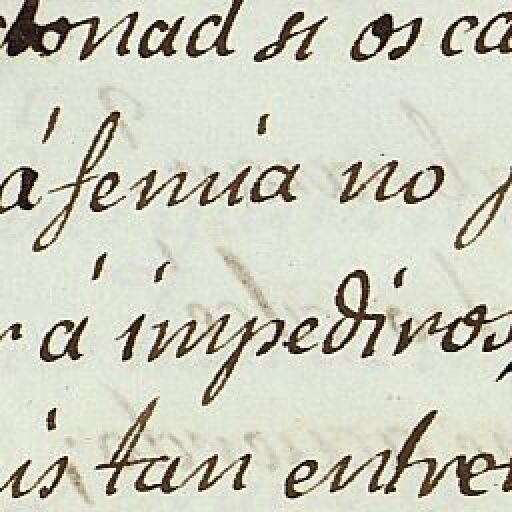 donad si os ca
á femia no p
r á impediros,
is tan entret